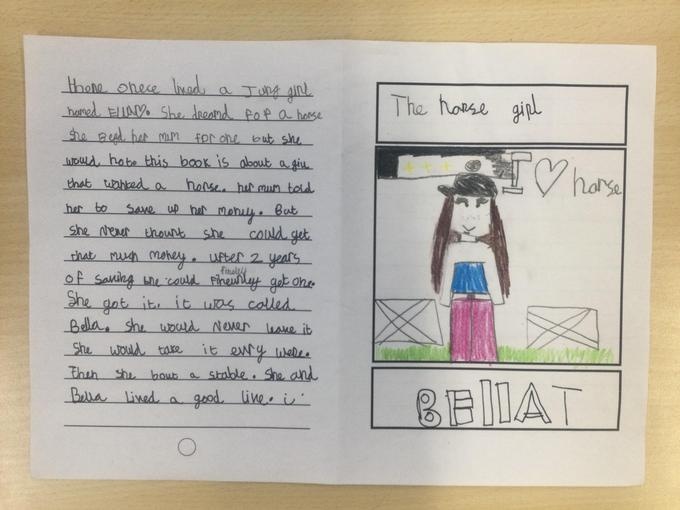 thone onece lived a Jung girl
named Ella♡. She dreamd for a horse
She Begd her mum for one but she
would hate this book is about a giu
that wanted a horse. her mum told
her to save up her money. But
she never thount she could get
that much money. ufter 2 years
of saving she could finely get one.
She got it. it was called
Bella. She would never leave it
She would take it evry were.
Then she bout a stable. She and
Bella Lived a good live.
The horse girl
I ♡ horse
BEllAT